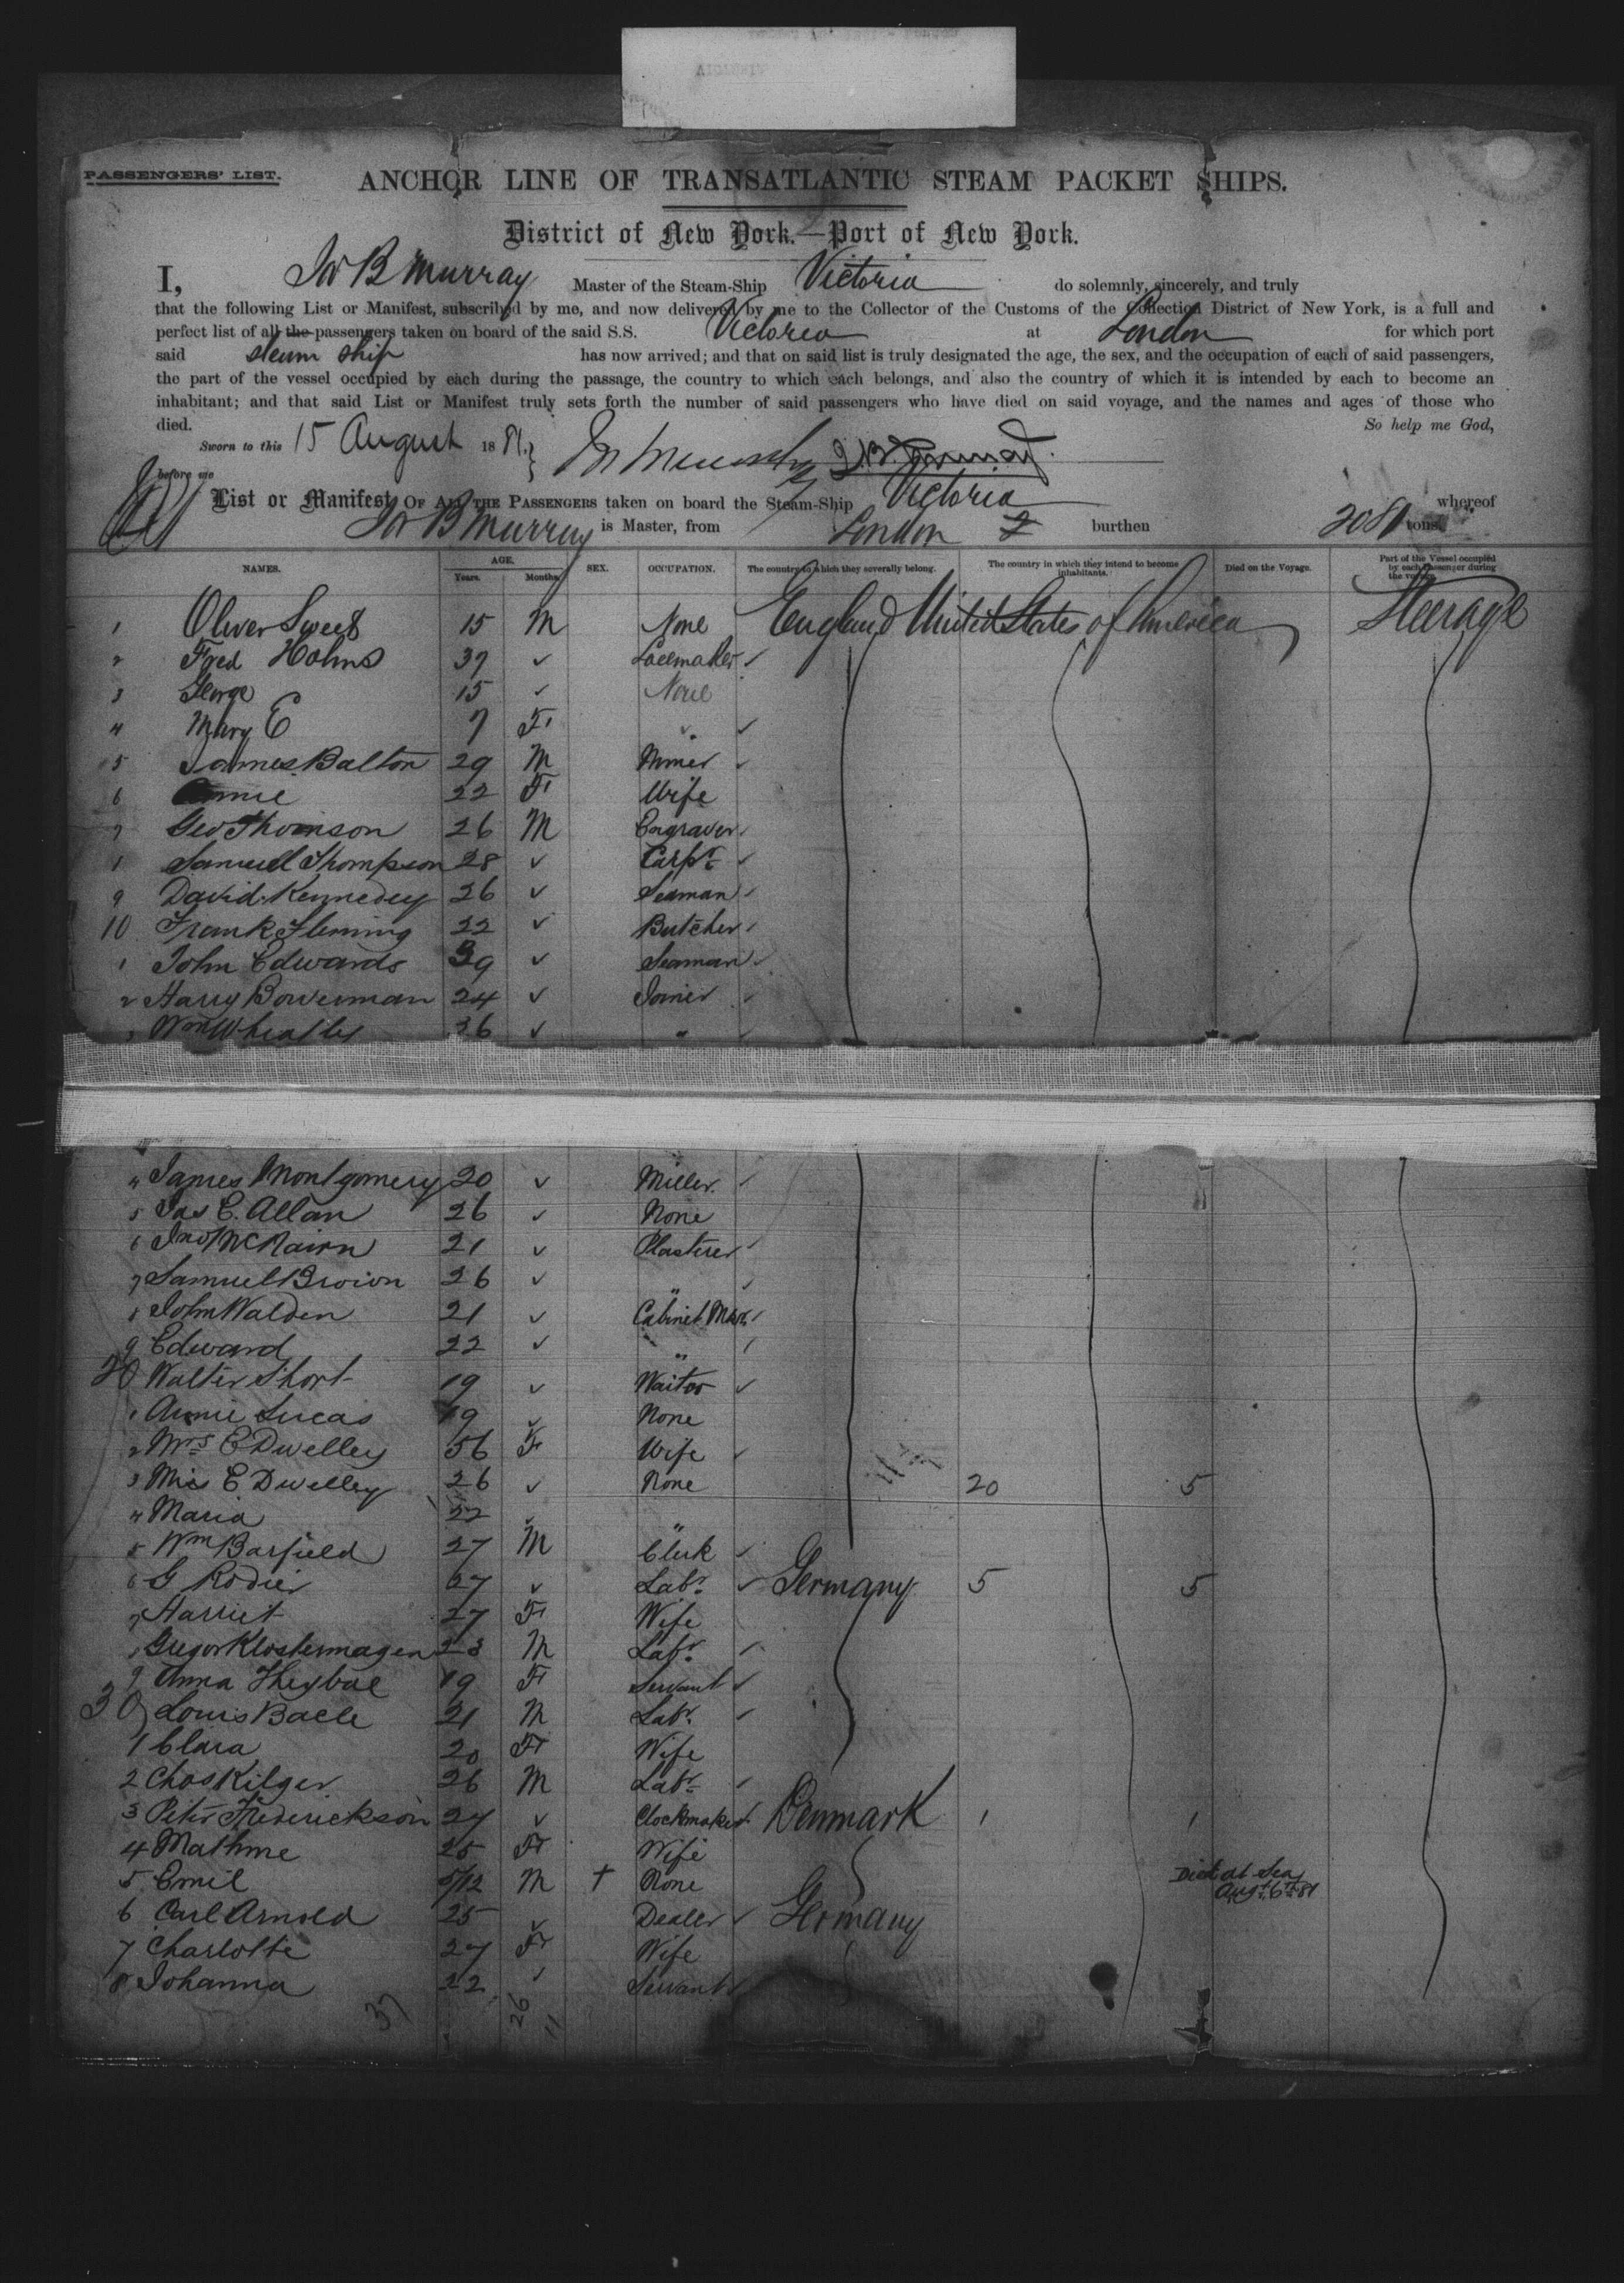 PASSENGERS' LIST.
ANCHOR LINE OF TRANSATLANTIC STEAM PACKET SHIPS.
District of New York.—Port of New York.
I, Jn B Murray Master of the Steam-Ship Victoria do solemnly, sincerely, and truly
that the following List or Manifest, subscribed by me, and now delivered by me to the Collector of the Customs of the Collection District of New York, is a full and
perfect list of all the passengers taken on board of the said S.S. Victoria at London for which port
said steam ship has now arrived; and that on said list is truly designated the age, the sex, and the occupation of each of said passengers,
the part of the vessel occupied by each during the passage, the country to which each belongs, and also the country of which it is intended by each to become an
inhabitant; and that said List or Manifest truly sets forth the number of said passengers who have died on said voyage, and the names and ages of those who
died. So help me God,
Sworn to this 15 August 1881.
before me
List or Manifest OF ALL THE PASSENGERS taken on board the Steam-Ship Victoria whereof
Jn B Murray is Master, from London burthen 2081 tons.
NAMES. AGE. Years. Months. SEX. OCCUPATION. The country to which they severally belong. The country in which they intend to become inhabitants. Died on the Voyage. Part of the Vessel occupied by each Passenger during the voyage.
1 Oliver Sweet 15 M None England United States of America Steerage
2 Fred Holms 37 ✓ Lacemaker ✓
3 George 15 ✓ None
4 Mary E 7 F " ✓
5 James Balton 29 M Miner ✓
6 Annie 22 F Wife
7 Geo Thomson 26 M Engraver ✓
8 Samuel Thompson 28 ✓ Carpr ✓
9 David Kennedey 26 ✓ Seaman ✓
10 Frank Fleming 22 ✓ Butcher ✓
1 John Edwards 39 ✓ Seaman ✓
2 Harry Bowerman 24 ✓ Joiner ✓
3 Wm Wheatley 36 ✓ " ✓
4 James Montgomery 20 ✓ Miller ✓
5 Jas E. Allan 26 ✓ None
6 Jno McNairn 21 ✓ Plasterer ✓
7 Samuel Brown 26 ✓ " ✓
8 John Walden 21 ✓ Cabinet Mkr. ✓
9 Edward 22 ✓ " ✓
20 Walter Short 19 ✓ Waiter ✓
1 Annie Lucas 19 ✓ None
2 Mrs E Dwelley 56 F Wife ✓
3 Miss E Dwelley 26 ✓ None 20 5
4 Maria 22 ✓ "
5 Wm Barfield 27 M Clerk ✓
6 G Rodier 27 ✓ Labr. ✓ Germany 5 5
7 Harriet 27 F Wife
8 Gregor Klostermagen 23 M Labr. ✓
9 Anna 19 F Servant ✓
30 Louis Baele 21 M Labr. ✓
1 Clara 20 F Wife
2 Chas Kilger 26 M Labr ✓
3 Peter Frederickson 27 ✓ Clockmaker ✓ Denmark 1 1
4 Mathine 25 F Wife
5 Emil 5/12 M + None Died at Sea Augt. 6th 81
6 Carl Arnold 25 ✓ Dealer ✓ Germany
7 Charlotte 27 F Wife
8 Johanna 22 ✓ Servant ✓
37 26 11